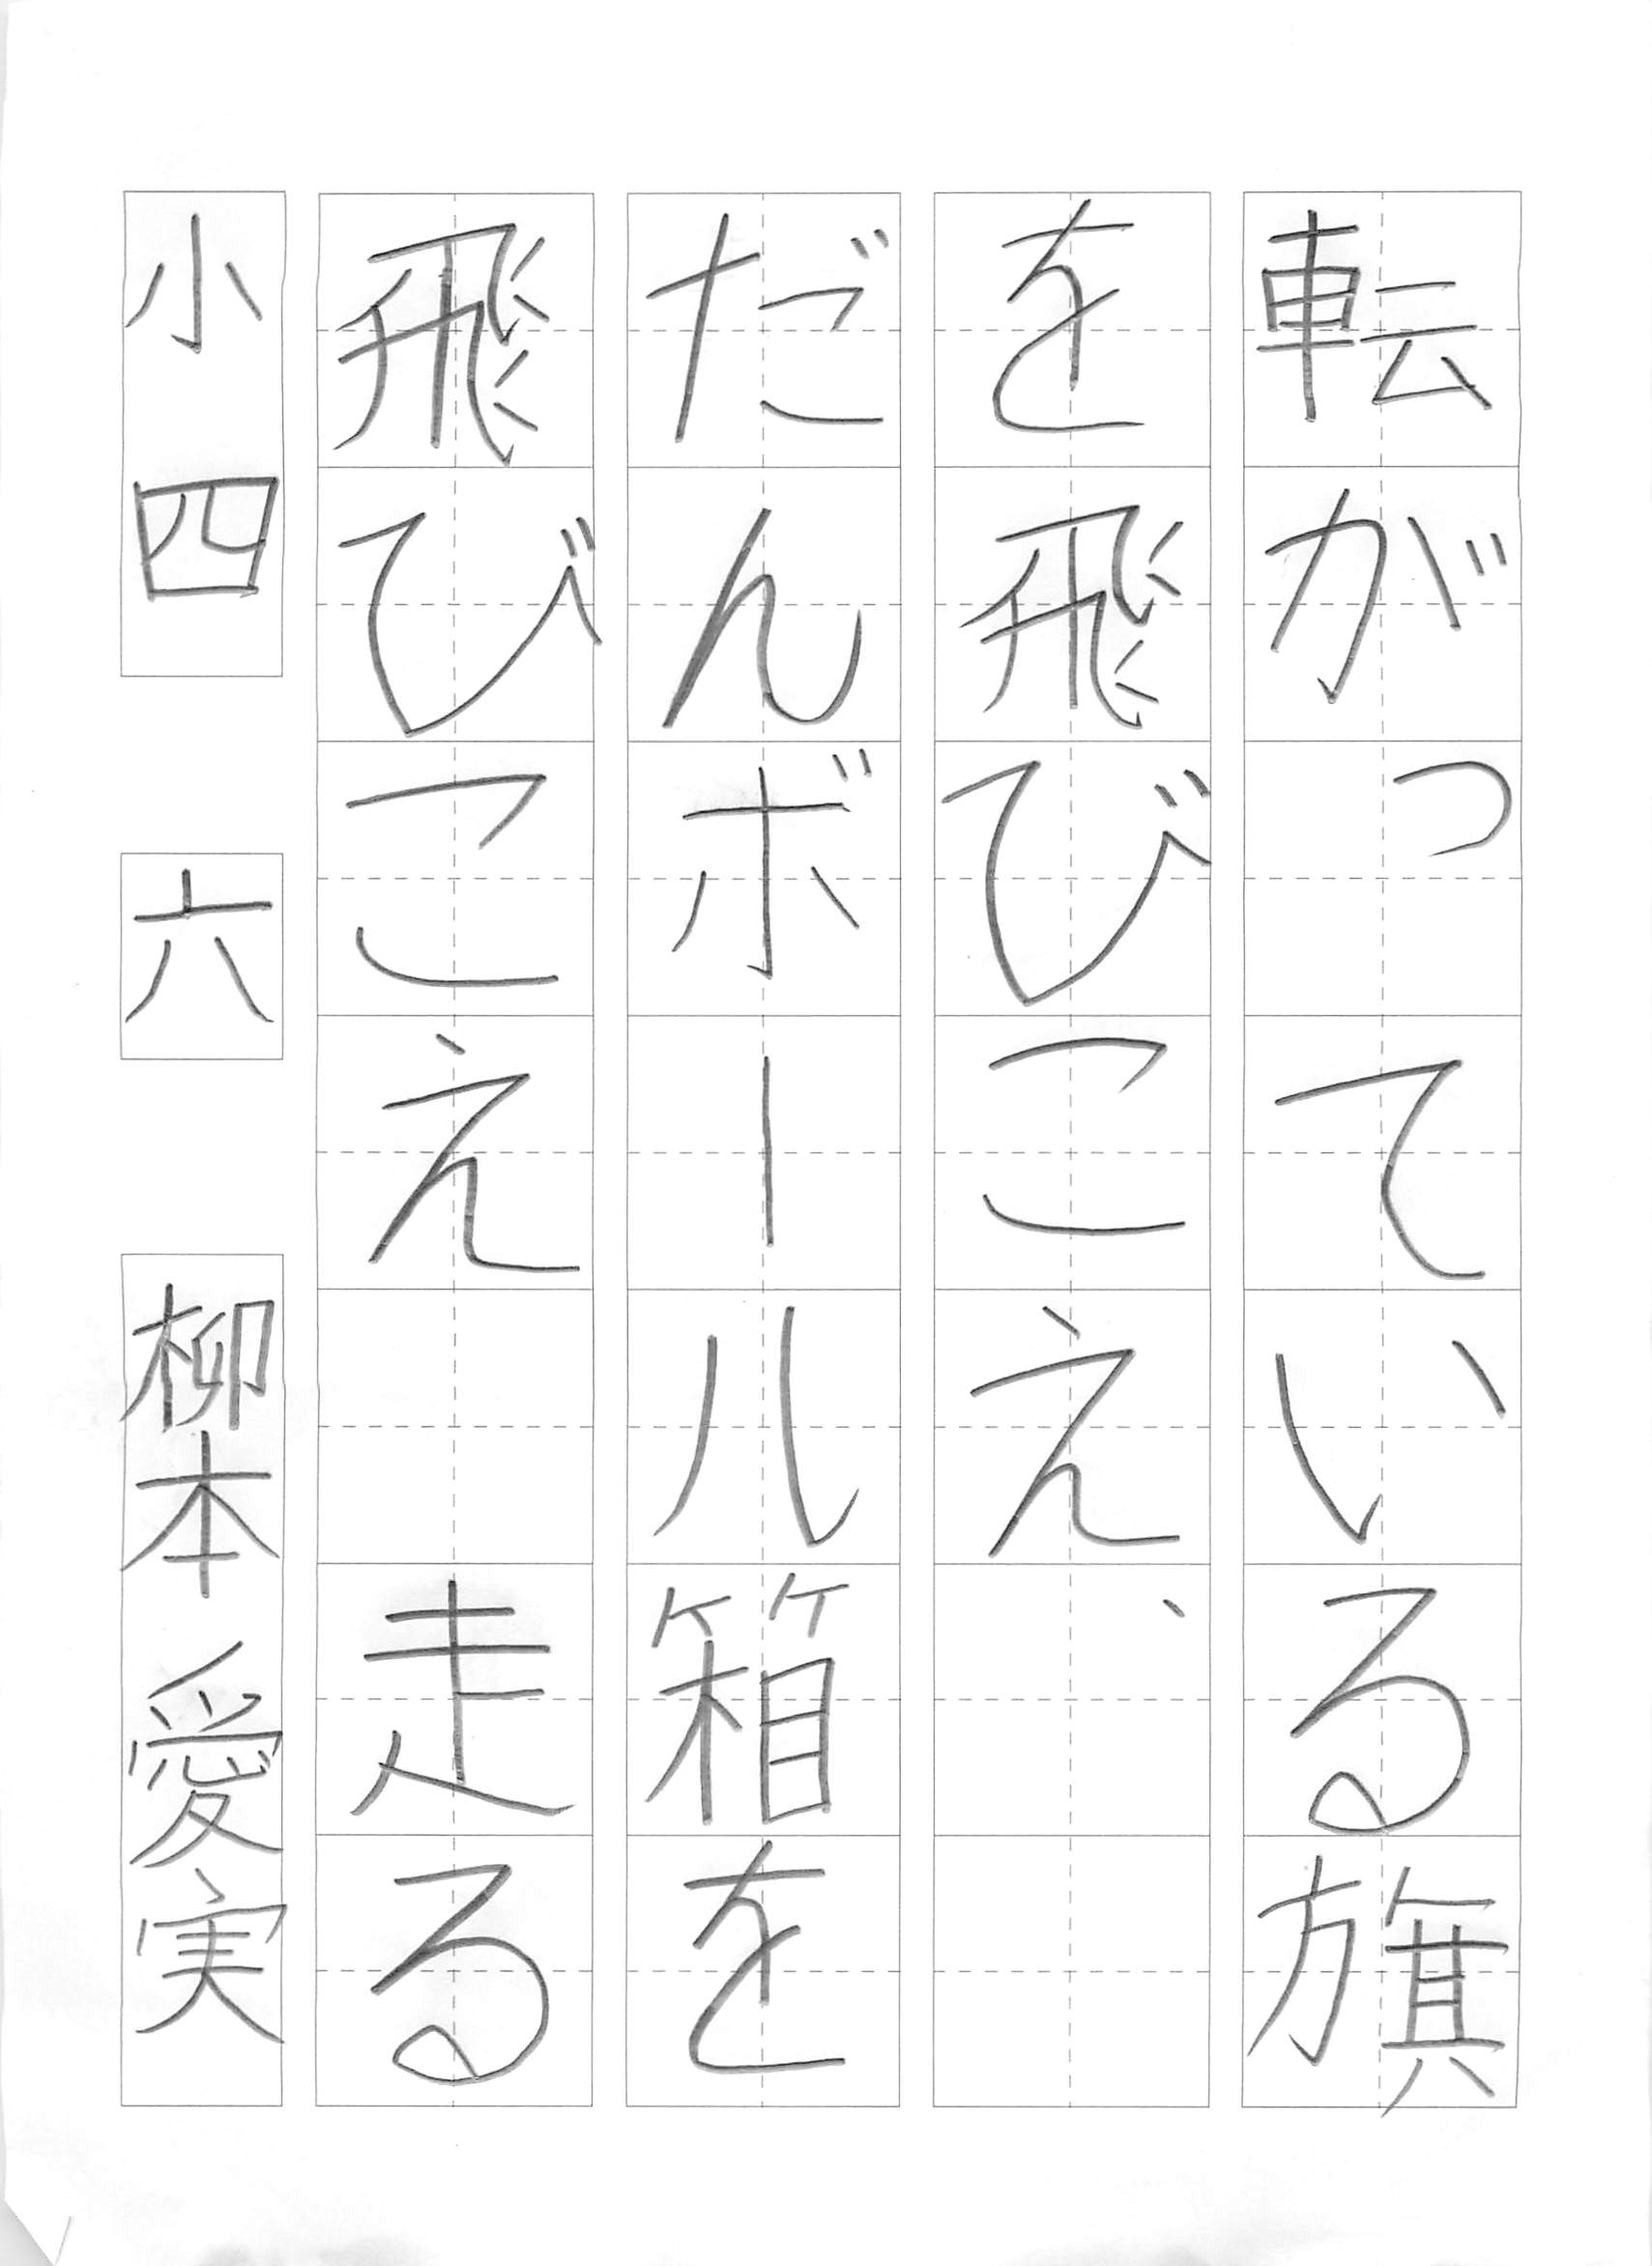 転がっている旗
を飛びこえ、
だんボール箱を
飛びこえ　走る
小四　六　柳本愛実